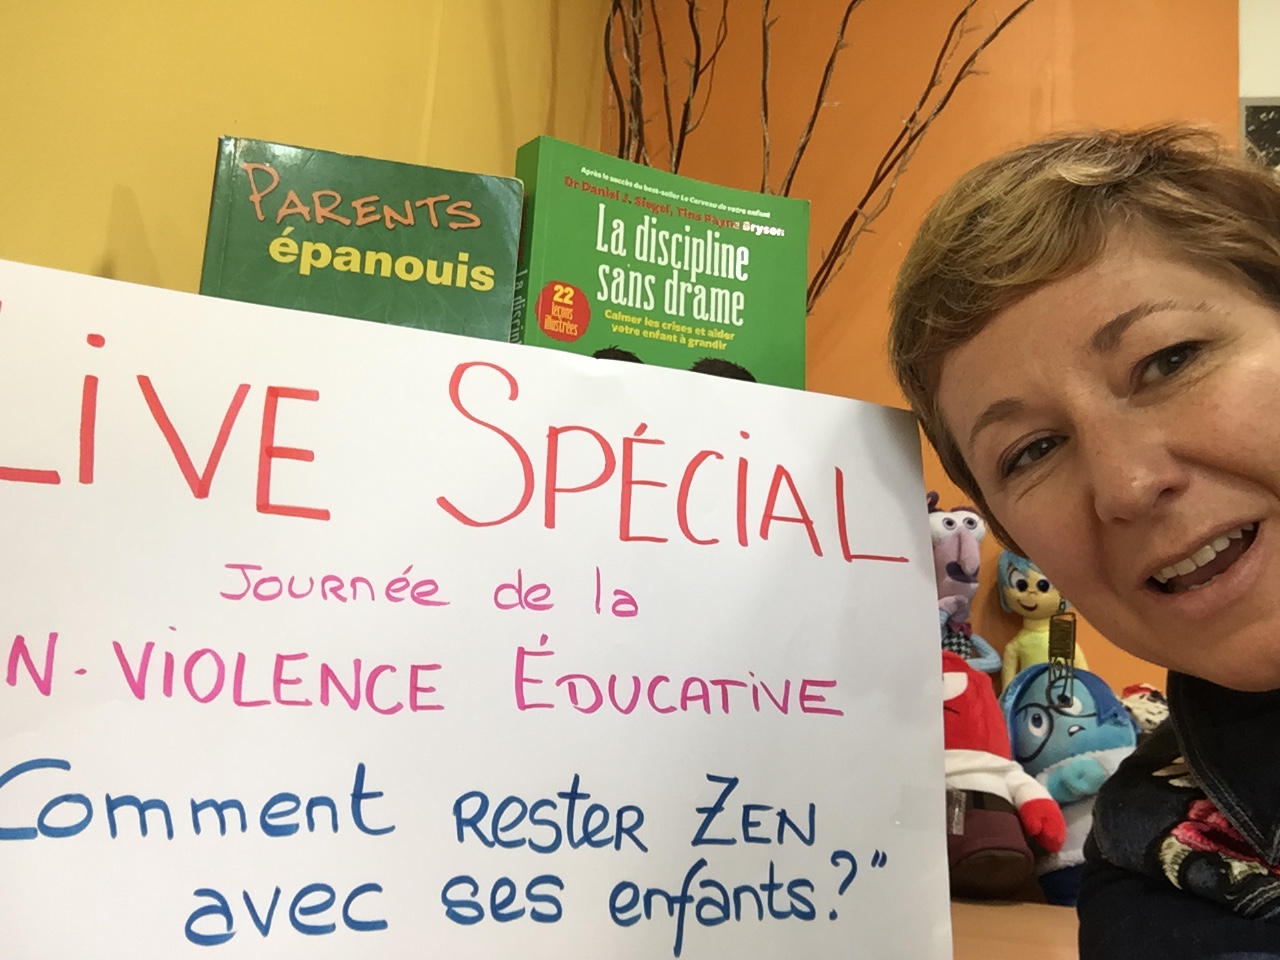 PARENTS
épanouis
Après le succès du best-seller Le Cerveau de votre enfant
Dr Daniel J. Siegel, Tina Payne Bryson
La discipline
sans drame
22
leçons
illustrées
Calmer les crises et aider
votre enfant à grandir
LIVE SPÉCIAL
Journée de la
N-VIOLENCE ÉDUCATIVE
Comment RESTER ZEN
avec ses enfants?"